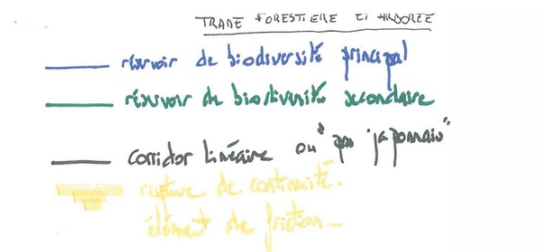 TRAME FORESTIERE ET ARBOREE
réservoir de biodiversité principal
réservoir de biodiversité secondaire
corridor linéaire ou "pas japonais"
rupture de continuité.
élément de friction_